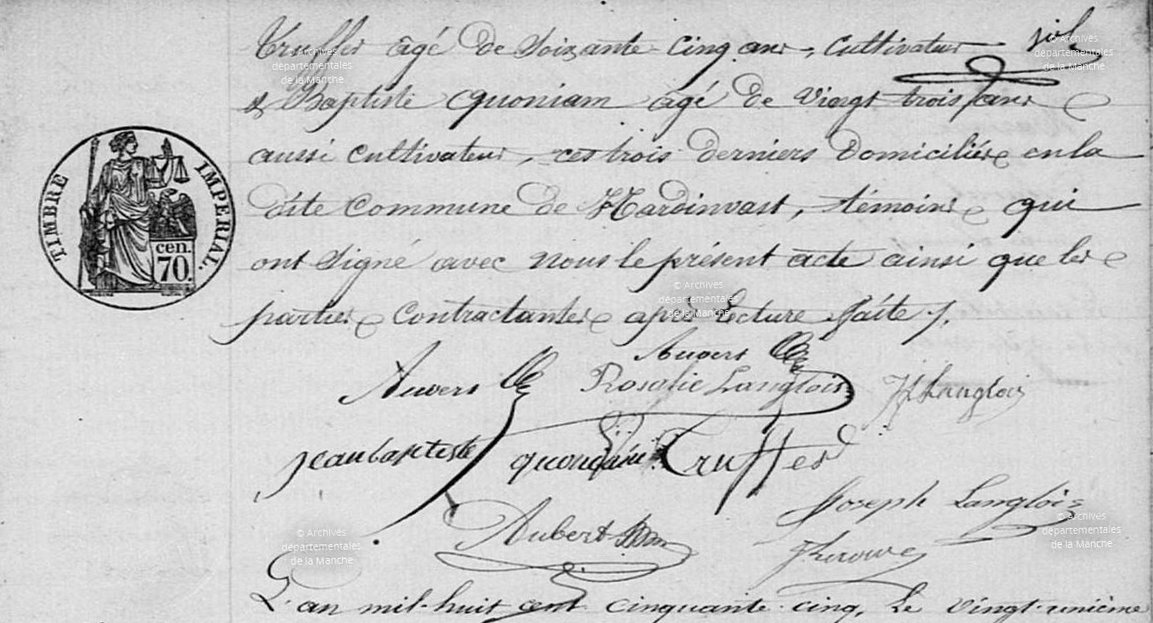 Truffer agé de soixante-cinq ans, cultivateur
& Baptiste Quoniam agé de vingt trois ans
aussi cultivateur, ces trois derniers domiciliés en la
dite commune de Hardinvast, témoins qui
ont signé avec nous le présent acte ainsi que les
parties contractantes après lecture faite /.
Auvers
Auvers Rosalie Langlois Langlois
jean baptiste quoniam Truffer
Joseph Langlois
Aubert
L'an mil-huit cent cinquante-cinq, le vingt-unième
TIMBRE IMPERIAL.
cen.
70.
© Archives
départementales
de la Manche
© Archives
départementales
de la Manche
© Archives
départementales
de la Manche
© Archives
départementales
de la Manche
© Archives
départementales
de la Manche